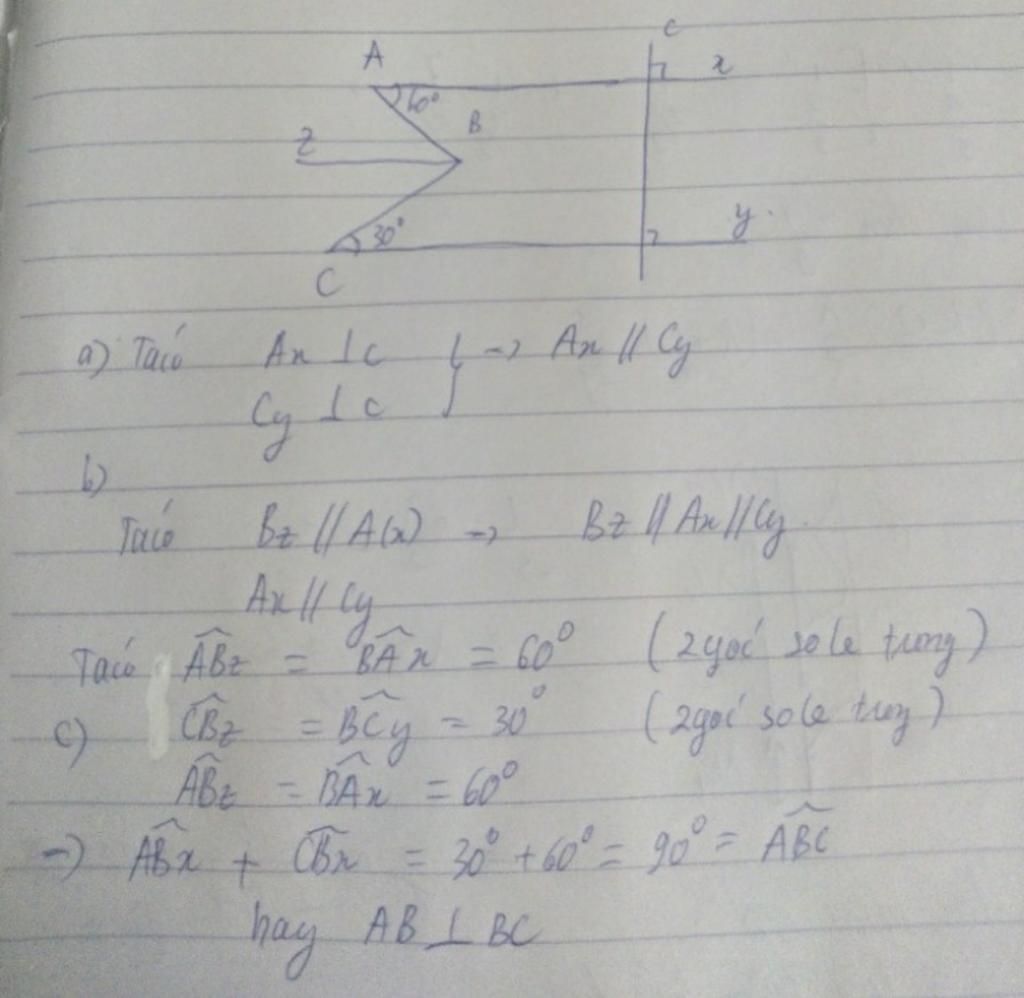 c
A x
60°
B
z
y
30°
C
a) Ta có Ax ⊥ c } → Ax // Cy
Cy ⊥ c
b)
Ta có Bz // A(x) → Bz // Ax // Cy.
Ax // Cy
Ta có \widehat{ABz} = \widehat{BAx} = 60° (2 góc so le trong)
c) \widehat{CBz} = \widehat{BCy} = 30° (2 góc so le trog)
\widehat{ABz} = \widehat{BAx} = 60°
→ \widehat{ABx} + \widehat{CBx} = 30° + 60° = 90° = \widehat{ABC}
hay AB ⊥ BC